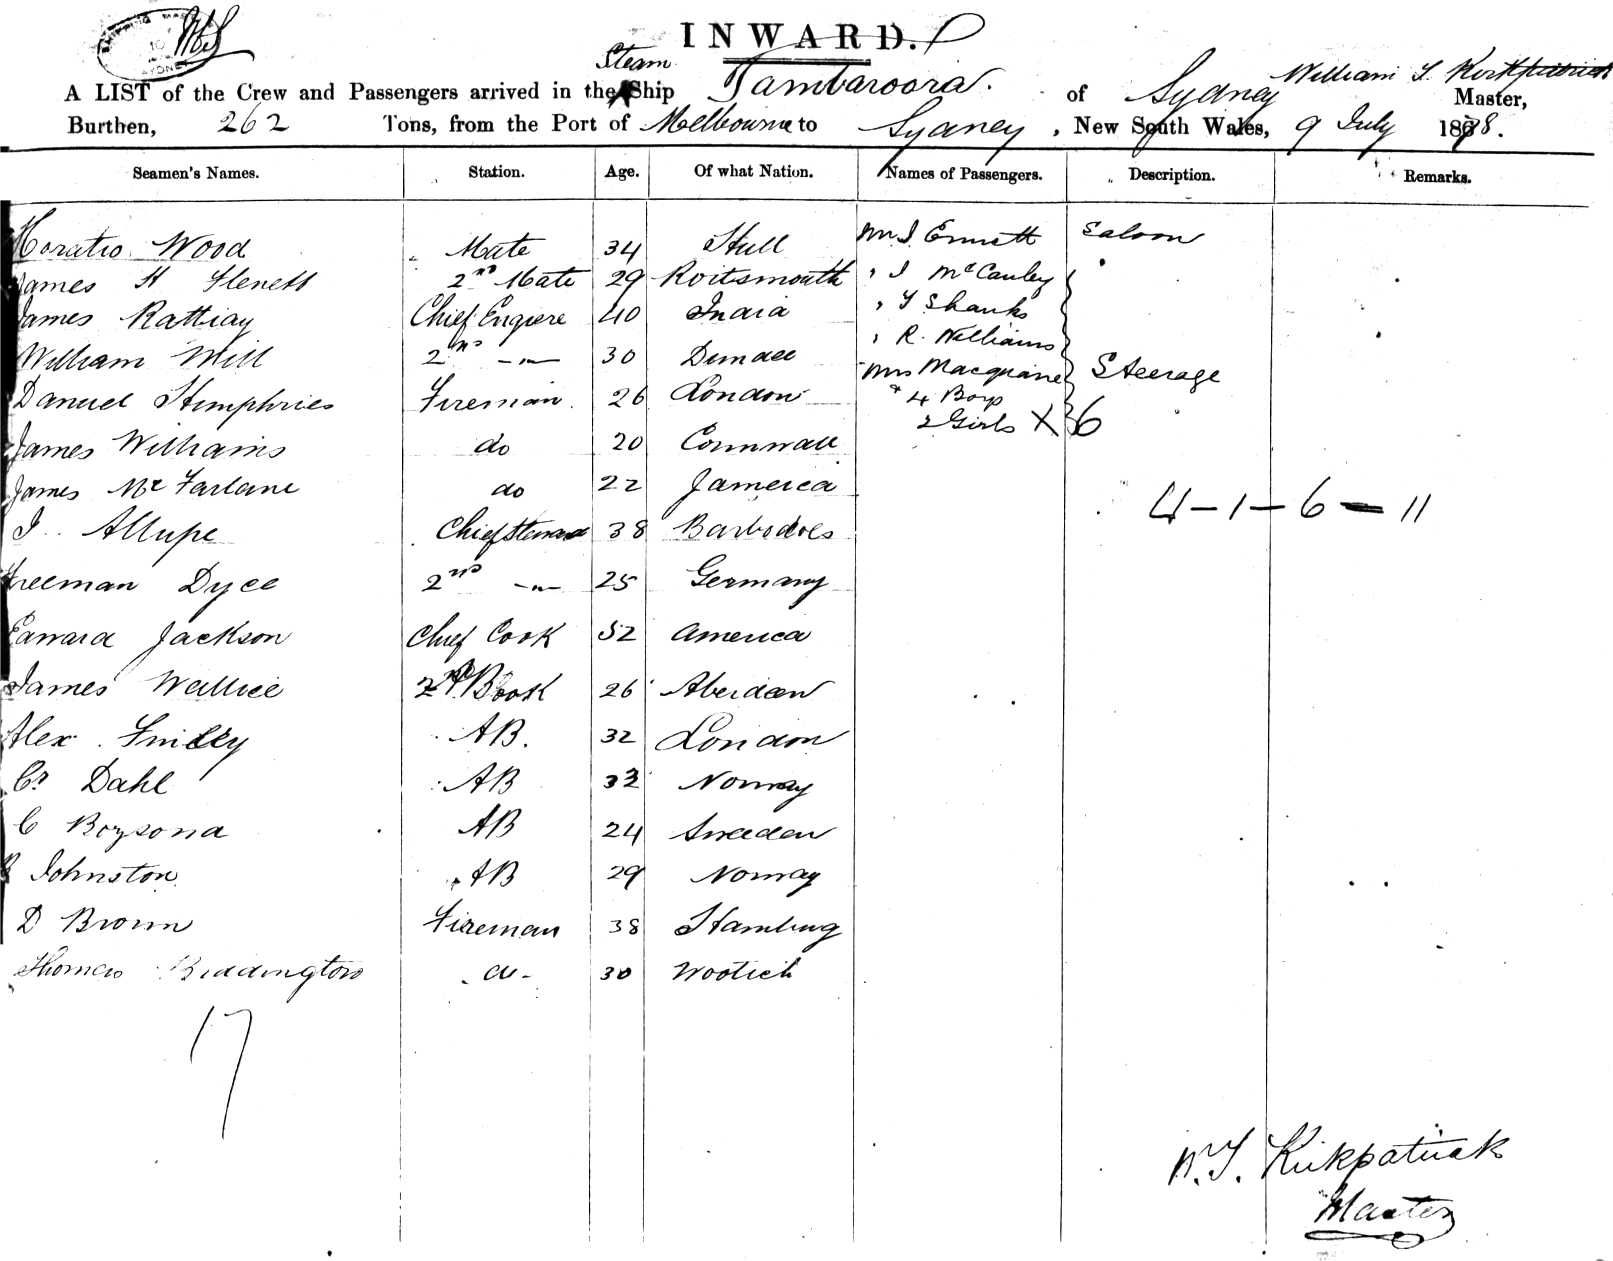 INWARD.
Steam
A LIST of the Crew and Passengers arrived in the Ship Tambaroora. of Sydney William T. Kirkpatrick Master,
Burthen, 262 Tons, from the Port of Melbourne to Sydney, New South Wales, 9 July 1878.
Seamen's Names. Station. Age. Of what Nation. Names of Passengers. Description. Remarks.
Horatio Wood Mate 34 Hull Mr J. Emett Saloon
James H 2nd Mate 29 Portsmouth " J McCauley
James Rattray Chief 40 India " T Shanks
William Mill 2nd -"- 30 Dundee " R. Williams
Mrs Macquarie Steerage
Daniel Humphries Fireman 26 London 4 Boys
2 Girls X 6
James Williams do 20 Cornwall
James McFarlane do 22 Jameica
4-1-6-11
J. Allupe Chief Steward 38 Barbadoes
Freeman Dyce 2nd -"- 25 Germany
Edward Jackson Chief Cook 52 America
James Wallice 2nd Cook 26 Aberdeen
Alex. AB. 32 London
Cr Dahl AB 32 Norway
C Boysond AB 24 Sweeden
R Johnston AB 29 Norway
D Brown Fireman 38 Hamburg
Thomas Biddington do 30 Woolich
17
W. T. Kirkpatrick
Master